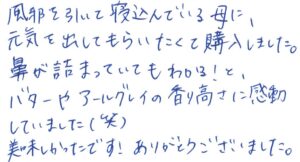 風邪を引いて寝込んでいる母に、
元気を出してもらいたくて購入しました。
鼻が詰まっていてもわかる！と、
バターやアールグレイの香り高さに感動
していました(笑)
美味しかったです！ありがとうございました。